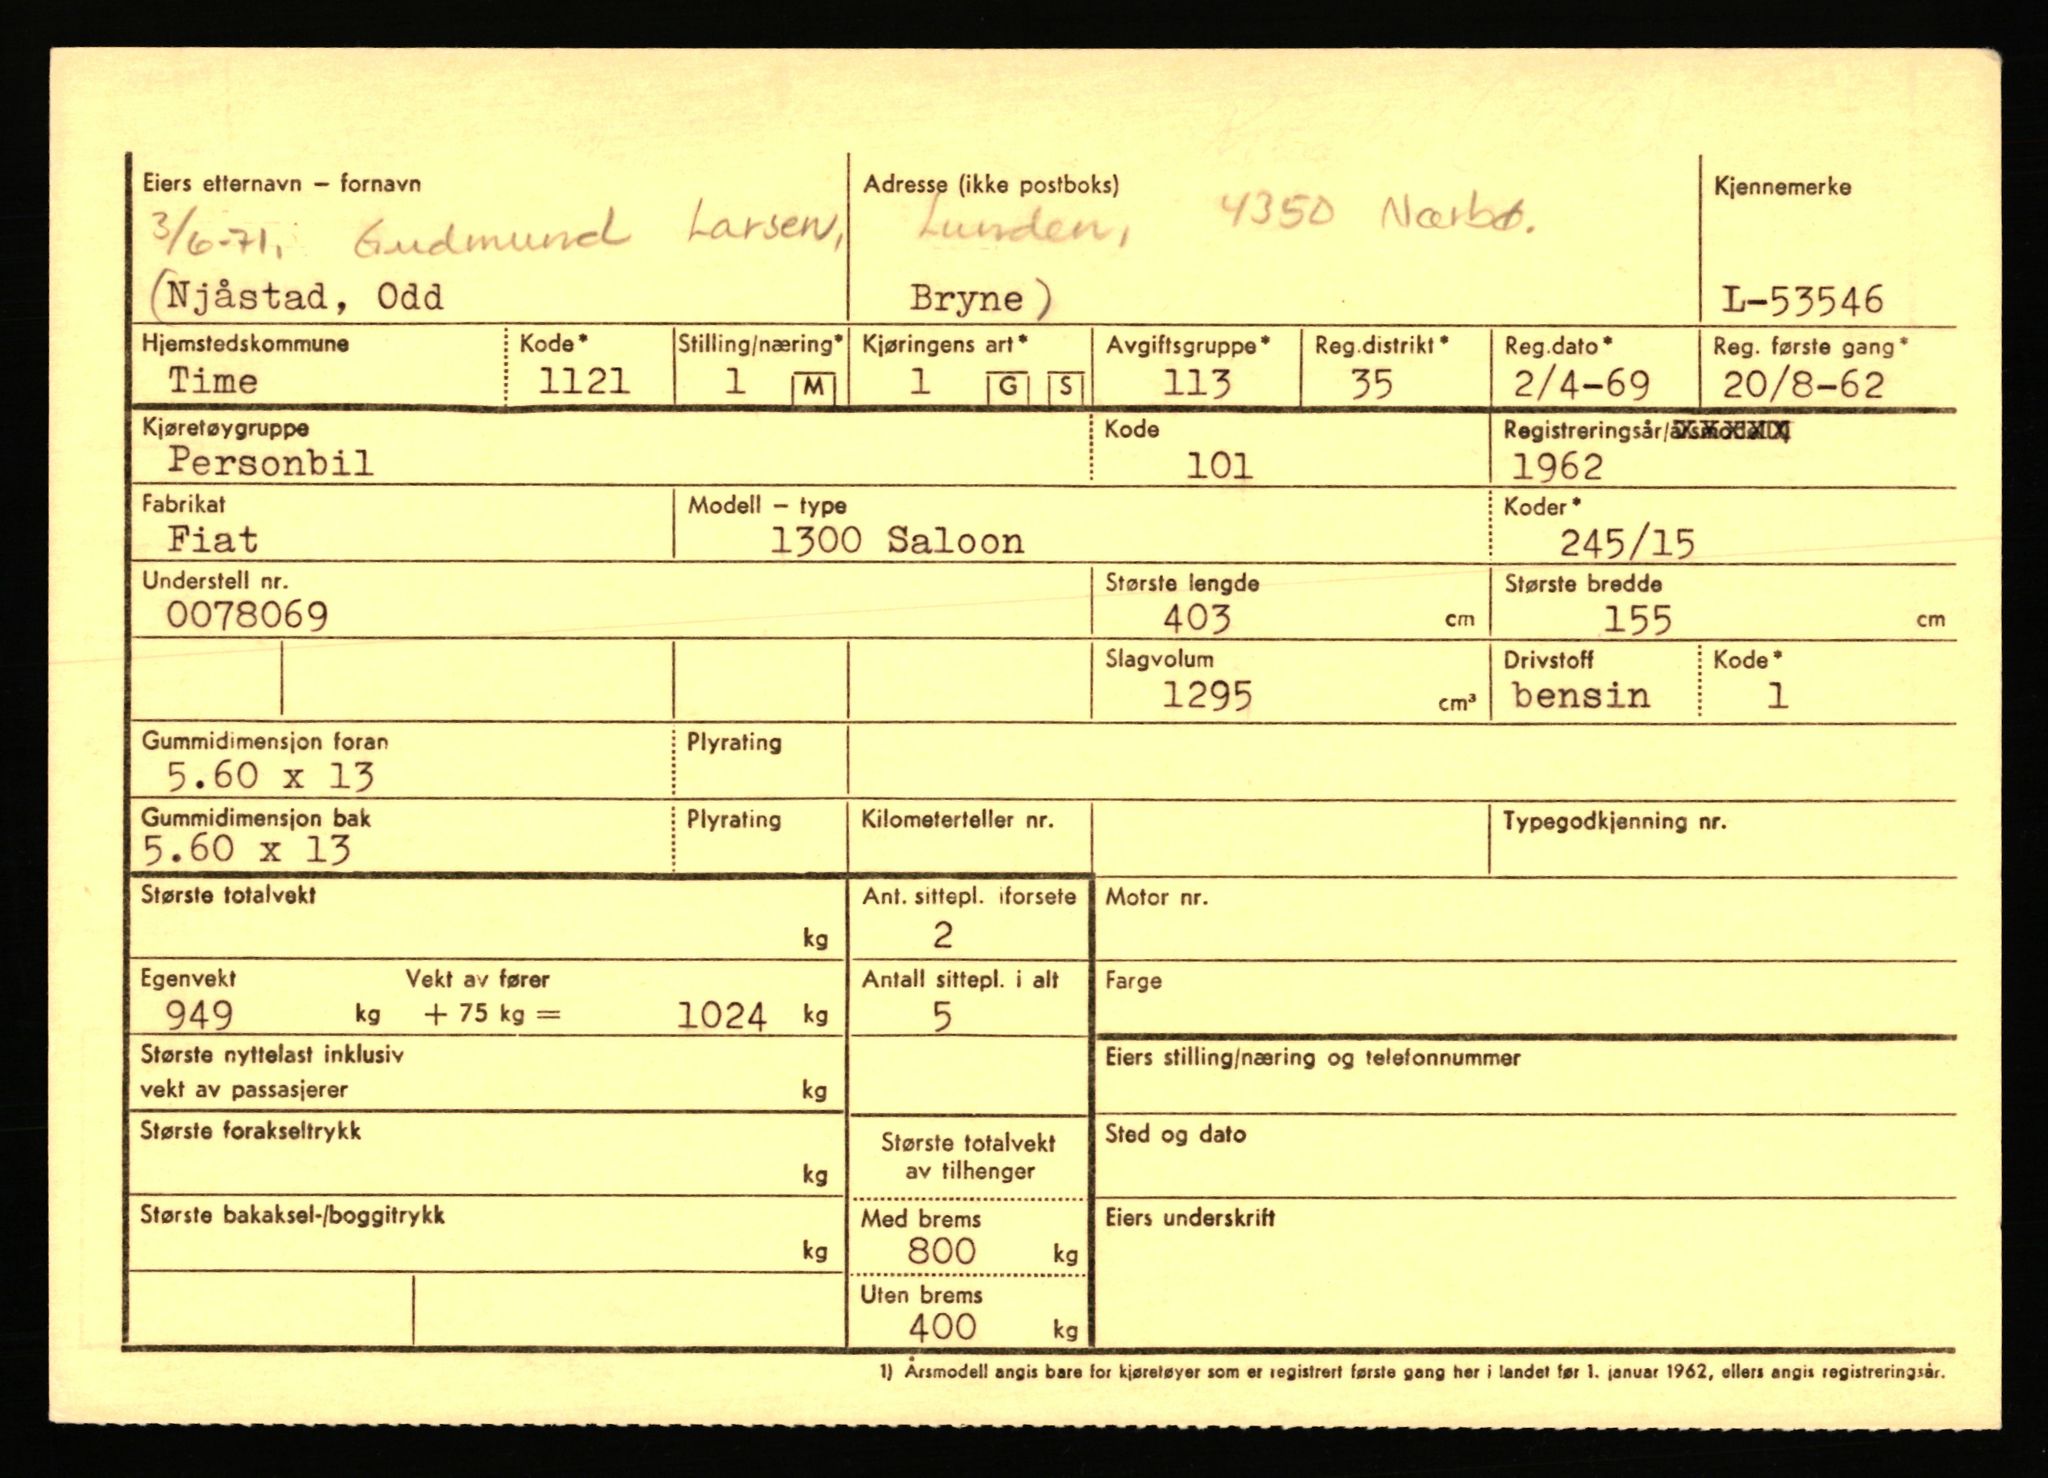 Eiers etternavn – fornavn Adresse (ikke postboks) Kjennemerke
3/6-71, Gudmund Larsen, Lunden, 4350 Nærbø.
(Njåstad, Odd Bryne) L-53546
Hjemstedskommune Kode* Stilling/næring* Kjøringens art* Avgiftsgruppe* Reg.distrikt* Reg.dato* Reg. første gang*
Time 1121 1 M 1 G S 113 35 2/4-69 20/8-62
Kjøretøygruppe Kode Registreringsår/
Personbil 101 1962
Fabrikat Modell – type Koder*
Fiat 1300 Saloon 245/15
Understell nr. Største lengde Største bredde
0078069 403 cm 155 cm
Slagvolum Drivstoff Kode*
1295 cm³ bensin 1
Gummidimensjon foran Plyrating
5.60 x 13
Gummidimensjon bak Plyrating Kilometerteller nr. Typegodkjenning nr.
5.60 x 13
Største totalvekt Ant. sittepl. iforsete Motor nr.
kg 2
Egenvekt Vekt av fører Antall sittepl. i alt Farge
949 kg + 75 kg = 1024 kg 5
Største nyttelast inklusiv Eiers stilling/næring og telefonnummer
vekt av passasjerer kg
Største forakseltrykk Største totalvekt Sted og dato
kg av tilhenger
Største bakaksel-/boggitrykk Med brems Eiers underskrift
kg 800 kg
Uten brems
400 kg
1) Årsmodell angis bare for kjøretøyer som er registrert første gang her i landet før 1. januar 1962, ellers angis registreringsår.